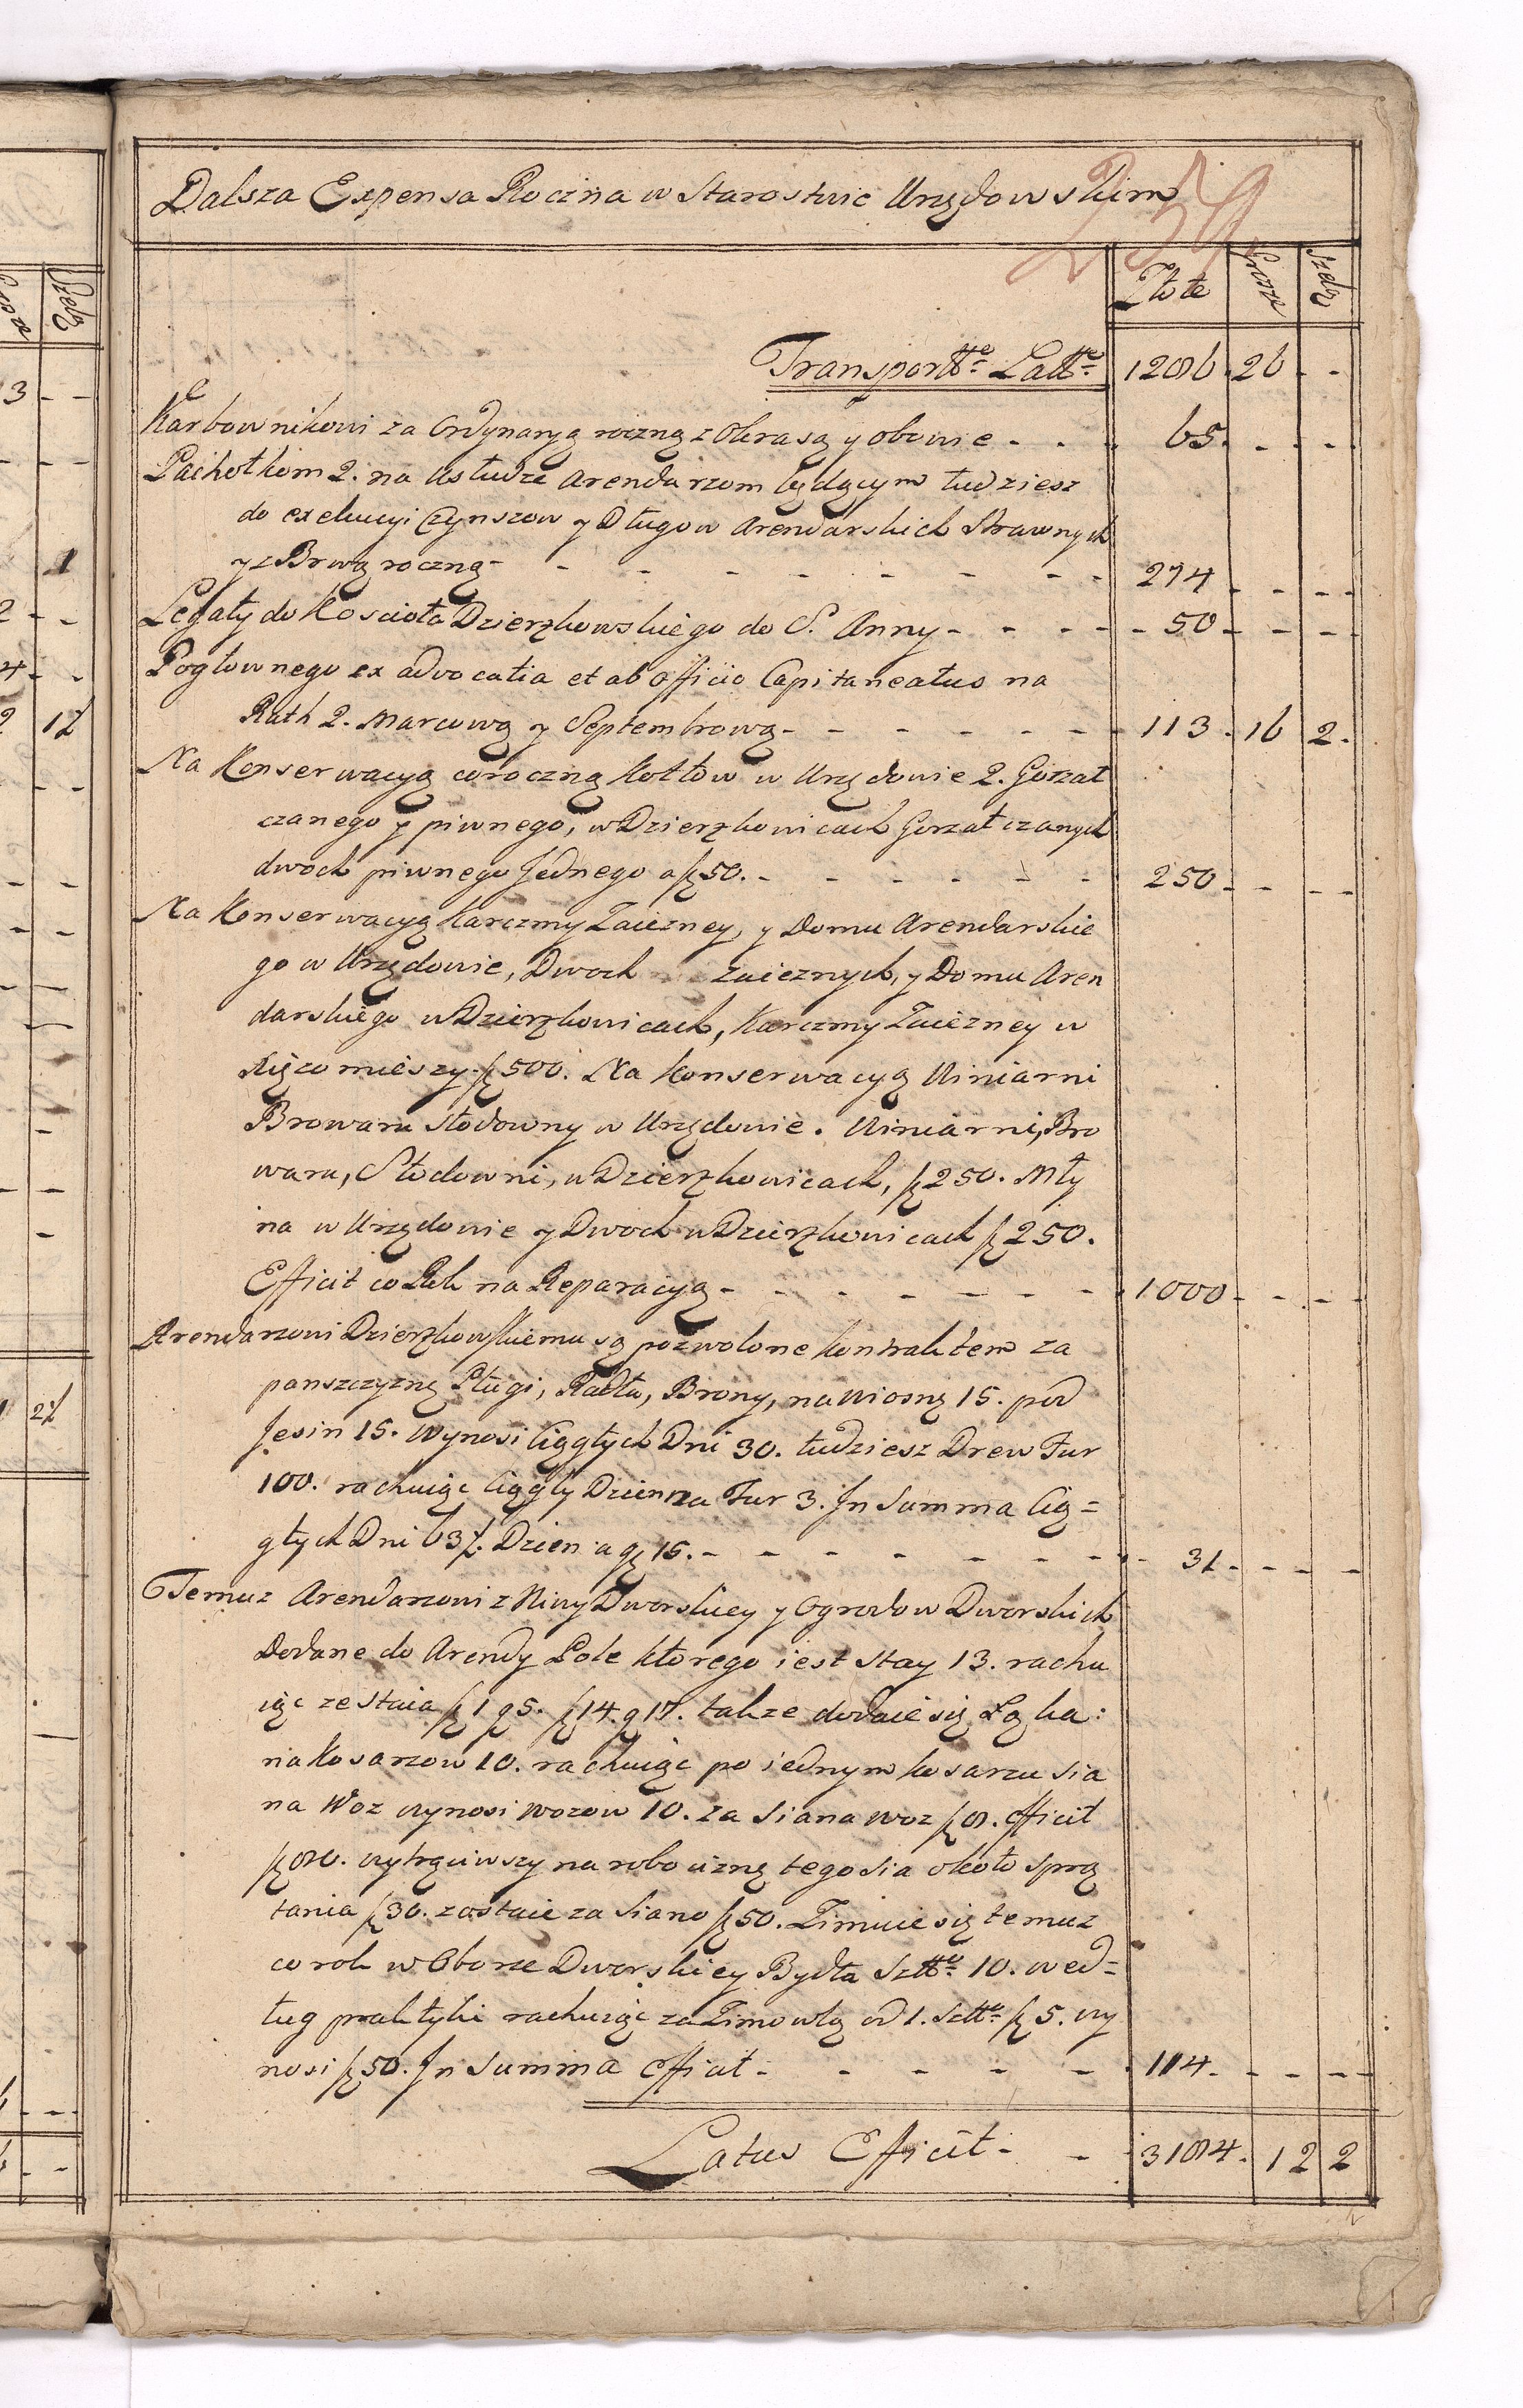 Dalsza Expensa Roczna w Starostwie Urzędowskim
259
Złote Grosze Szelą
Transportte Latte 1286. 26 - -
Karbownikowi za Ordynaryą roczną z Okrasą y obowie - - - 65. - - - -
Pachołkom 2. na usłudze Arendarzom będącym tudziesz
do exekucyi Czynszow y Długow Arendarskich Strawnych
y z Brwą roczną - - - - - - - - 274 - - - -
Legaty do Kościoła Dzierzkowskiego do S. Anny - - - - 50 - - - -
Pogłownego ex advocatia et ab officio Capitaneatus na
Rath 2. Marcową y Septembrową - - - - - - 113. 16 2.
Na Konserwacyą coroczną Kotłow w Urzędowie 2. Gorzał
czanego y piwnego, w Dzierzkowicach Gorzałczanych
dwoch piwnego Jednego a fl 50. - - - - - - 250 - - - -
Na Konserwacyą Karczmy Zaiezney, y Domu Arendarskie
go w Urzędowie, Dwoch zaieznych, y Domu Aren
darskiego w Dzierzkowicach, Karczmy Zaiezney w
Xięzomieszy fl 500. Na Konserwacyą Winiarni
Browaru Słodowny w Urzędowie. Winiarni, Bro
waru, Słodowni, w Dzierzkowicach, fl 250. Mły
na w Urzędowie y Dwoch w Dzierzkowicach fl 250.
Efficit co Rok na Reparacyą - - - - - - - 1000 - - - -
Arendarzowi Dzierzkowskiemu są pozwolone kontraktem za
panszczyznę Pługi, Radła, Brony, na wiosnę 15. pod
Jesin 15. wynosi Ciągłych Dni 30. tudziesz Drew Fur
100. rachuiąc Ciągły Dzien na Fur 3. Jn Summa Cią=
głych Dni 63/. Dzien a gr 15. - - - - - - - 31 - - - -
Temuz Arendarzowi z Niwy Dworskiey y Ogrodow Dworskich
Dodane do Arendy Pole ktorego iest Stay 13. rachu
iąc ze Staia fl 1 g 5. fl 14. g 17. takze dodaie się Łąka:
na Kosarzow 10. rachuiąc po iednym kosarzu Sia
na Woz wynosi wozow 10. za Siana woz fl 8. efficit
fl 80. wytrąciwszy na robociznę tego Sia około sprzą
tania fl 30. zostaie za Siano fl 50. Zimuie się temuz
co rok w Oborze Dworskiey Bydła Sztte 10. wed=
ług praktyki rachuiąc za Zimowlą od 1. Sztte fl 5. wy
nosi fl 50. Jn Summa efficit - - - - - 114. - - - -
Latus Efficit - - 3184. 12 2